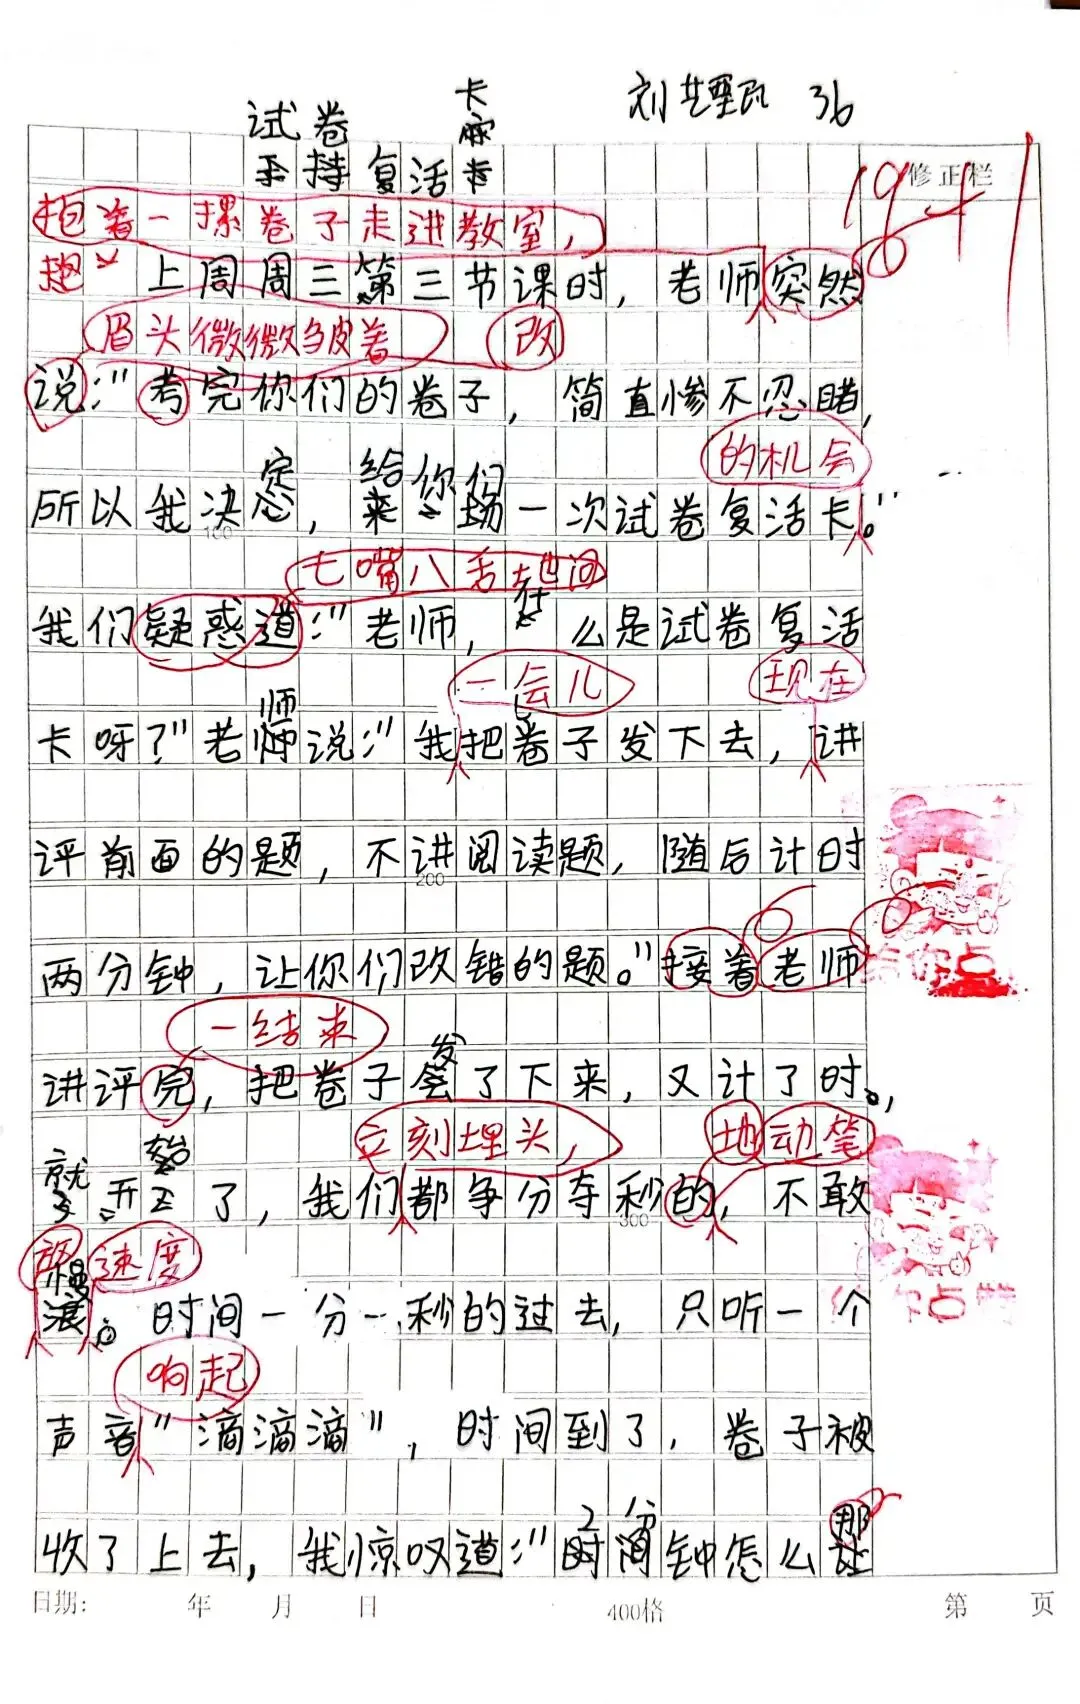 卡
刘 36
试卷
手持复活卡
修正栏
19+1
抱着一摞卷子走进教室，
上周周三第三节课时，老师突然
眉头微微皱着 改
说："考完你们的卷子，简直惨不忍睹，
的机会
定 给你们
所以我决，一次试卷复活卡。"
100
七嘴八舌地问
我们疑惑道："老师，什么是试卷复活
一会儿 现在
师
卡呀？"老师说："我把卷子发下去，讲
评前面的题，不讲阅读题，随后计时
200
两分钟，让你们改错的题。"接着老师
给你点
一结束
发
讲评完，把卷子了下来，又计了时。，
立刻埋头， 地动笔
就 始
开了，我们都争分夺秒的，不敢
300
放慢速度
。时间一分一秒的过去，只听一个
你点赞
响起
声音"滴滴滴"，时间到了，卷子被
2分 那
收了上去，我惊叹道："时间钟怎么
日期： 年 月 日 400格 第 页